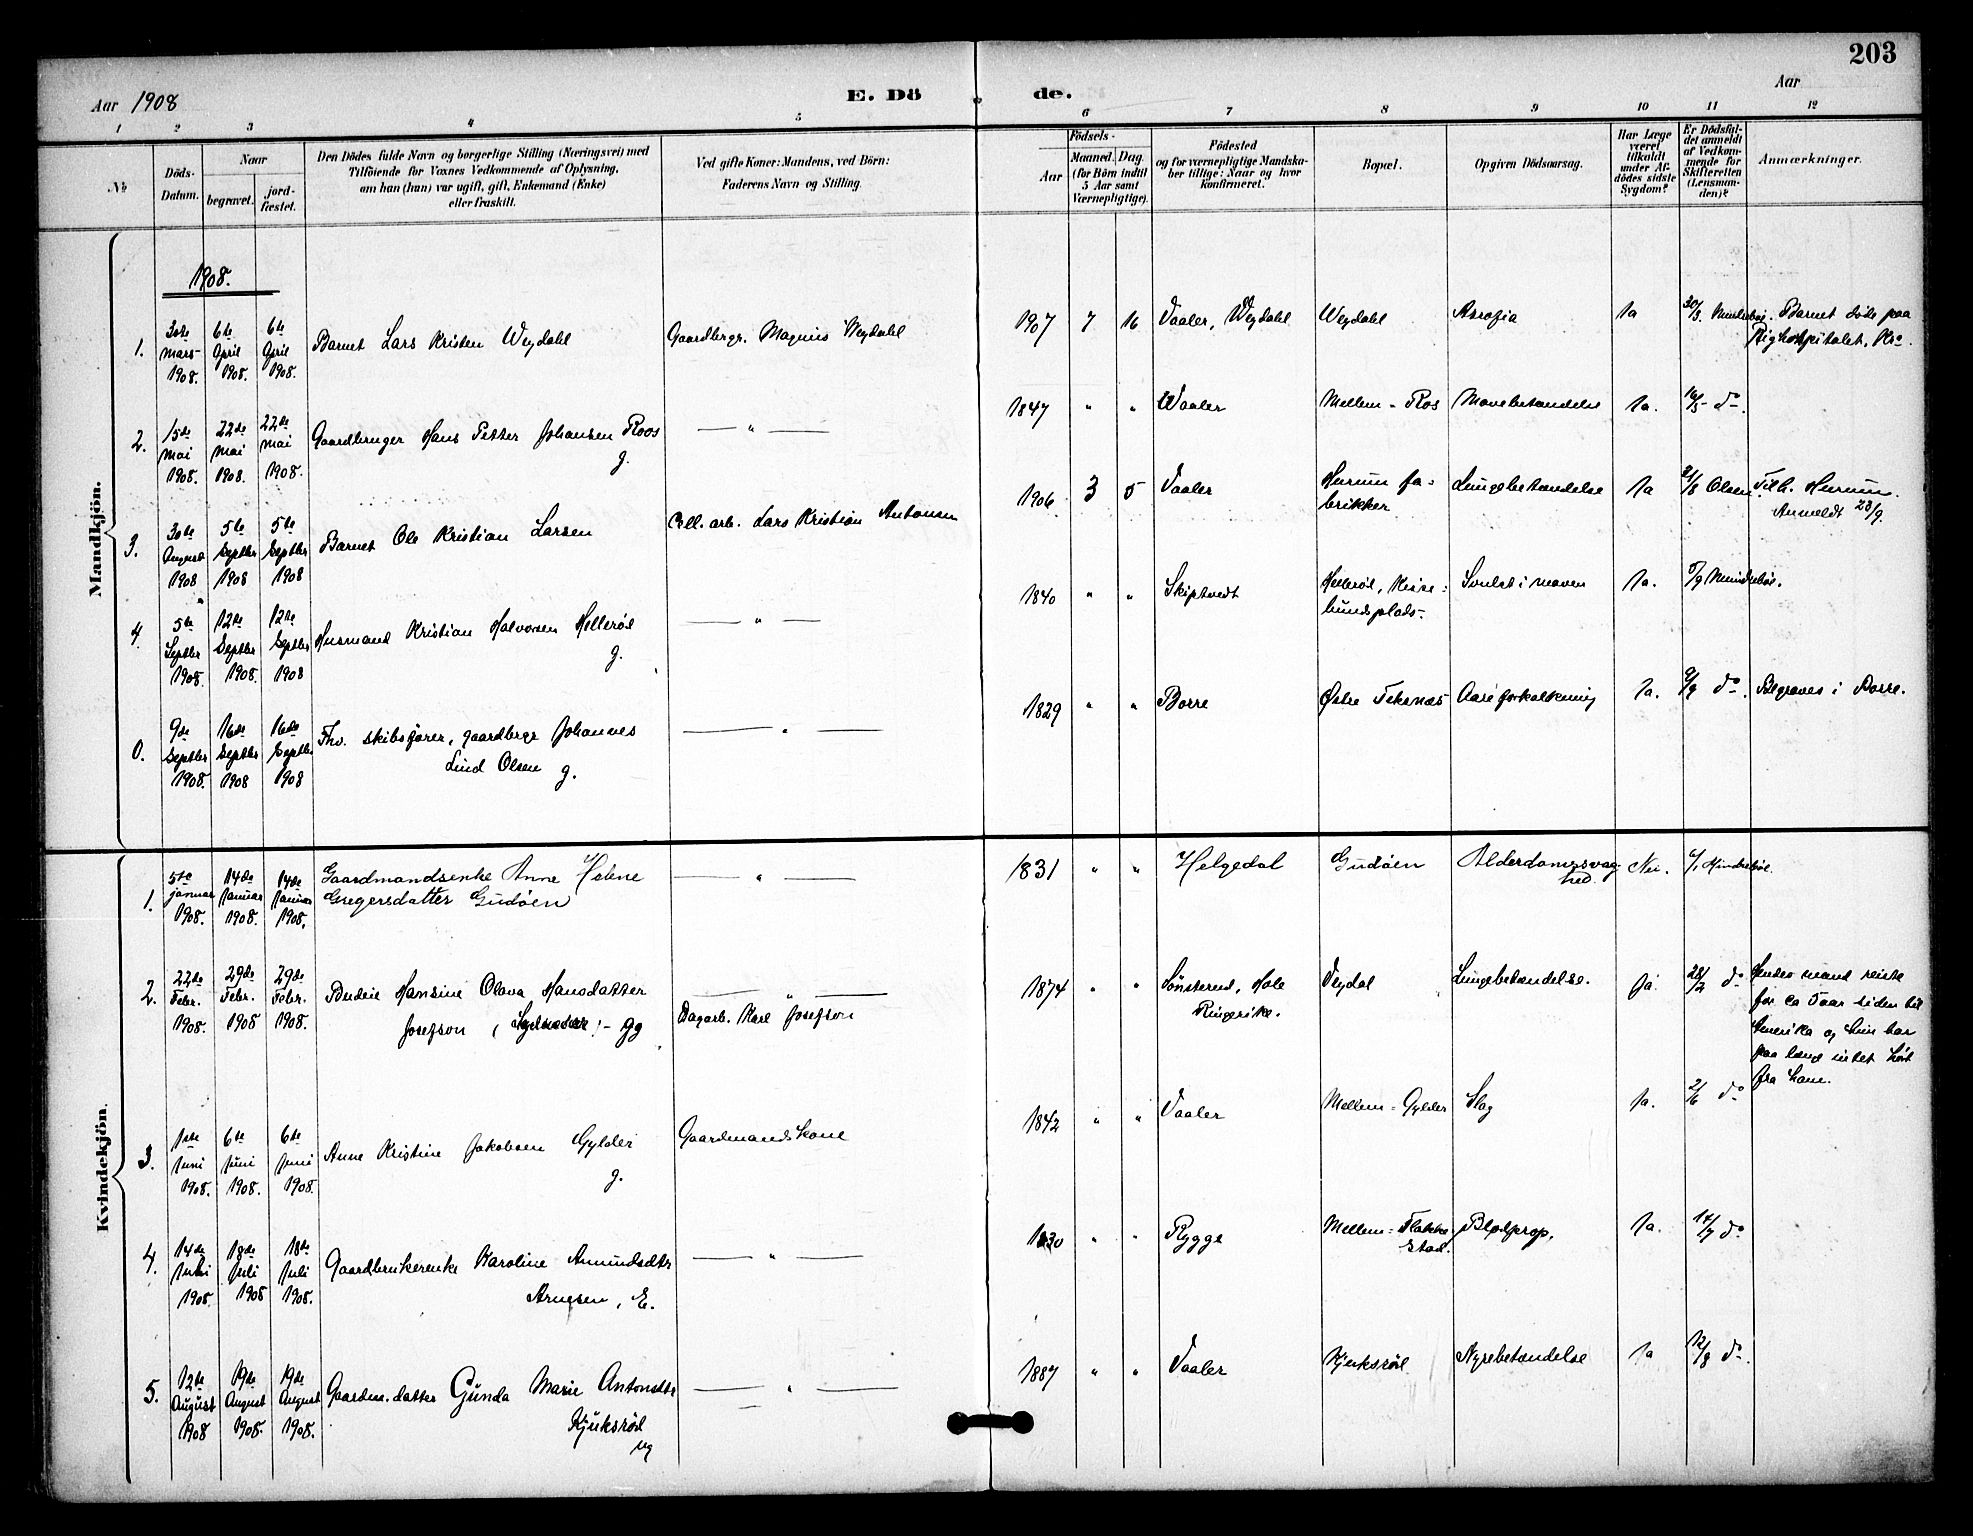 203
Aar 1908
E. Dö de.
Aar
1 2 3 4 5 6 7 8 9 10 11 12
No
Döds-Datum.
Naar
begravet.
jord-fæstet.
Den Dödes fulde Navn og borgerlige Stilling (Næringsvei) med
Tilföiende for Voxnes Vedkommende af Oplysning,
om han (hun) var ugift, gift, Enkemand (Enke)
eller fraskilt.
Ved gifte Koner: Mandens, ved Börn:
Faderens Navn og Stilling.
Födsels-
Aar
Maaned. Dag.
(for Börn indtil
5 Aar samt
Værnepligtige).
Födested
og for værnepligtige Mandska-
ber tillige: Naar og hvor
konfirmeret.
Bopæl.
Opgiven Dödsaarsag.
Har Læge
været
tilkaldt
under Af-
dödes sidste
Sygdom?
Er Dödsfal-
det anmeldt
af Vedkom-
mende for
Skifteretten
(Lensman-
den)?
Anmærkninger.
Mandkjön.
1908.
1. 30te Mars 1908. 6te April 1908. 6te April 1908. Barnet Lars Kristen Weydahl Gaardbrgr. Magnus Weydahl 1907 7 16 Vaaler, Weydahl Weydahl Ja 30/3 Barnet døde paa
Righospitalet, Kra.
2. 15de Mai 1908. 22de Mai 1908. 22de Mai 1908. Gaardbruger Hans Petter Johansen Roos
g.
— " — 1847 " " Waaler Mellem-Ros Mavebetændelse Ja. 16/5 do.
3. 30te August 1908 5te Septbr 1908 5te Septbr 1908 Barnet Ole Kristian Larsen Cell. arb. Lars Kristian Antonsen 1906 3 5 Vaaler Hurum fa-
brikker Lungebetændelse Ja 31/8 Olsen Tilh. Hurum.
Anmeldt 23/9.
4. 5te Septbr 1908. 12te Septbr 1908. 12te Septbr 1908 Husmand Kristian Halvorsen Hellerød
g.
— " — 1840 " " Skiptvedt Hellerød,
hundsplads. Svulst i maven Ja. 5/9
0. 9de Septbr 1908. 16de Septbr 1908 16de Septbr 1908 Fhv. skibsfører, gaardbrgr Johannes
Lind Olsen g.
— " — 1829 " " Borre Østre Teksnæs Aareforkalkning Ja. 9/9 do. Begraves i Borre.
Kvindekjön.
1. 5te januar 1908. 14de Januar 1908. 14de Januar 1908. Gaardmandsenke Anne Helene
Gregersdatter Gudøen
— " — 1831 " " Helgedal Gudøen Alderdomssvag-
hed. Nei.
2. 22de Febr. 1908. 29de Febr. 1908 29de Febr. 1908. Budeie Hansine Olava Hansdatter
Josefson gg
— " —
Dagarb. Karl Josefson 1874 " " Sønsterud, Hole
Ringerike. Veydal Lungebetændelse. Ja. 28/2 do Hendes mand reiste
for ca 5 aar siden til
Amerika og hun har
paa længe intet hørt
fra ham.
3. 1ste Juni 1908. 6te Juni 1908. 6te Juni 1908. Anne Kristine Jakobsen Gylder
g.
Gaardmandskone 1842 " " Vaaler Mellem-Gylder Slag Ja. 2/6 do
4. 14de Juli 1908. 18de Juli 1908 18de Juli 1908. Gaardbrukerenke Karoline Amundsdtr
Arnesen, E.
— " — 1830 " " Rygge Mellem-Flakke
stad. Blodprop. Ja. 14/7 do
5. 12te August 1908 19de August 1908. 19de August 1908. Gaardm. datter Gunda Marie Antonsdtr
Kjuksrød
ug
— " — 1887 " " Vaaler Kjuksrød Nyrebetændelse Ja 12/8 do.